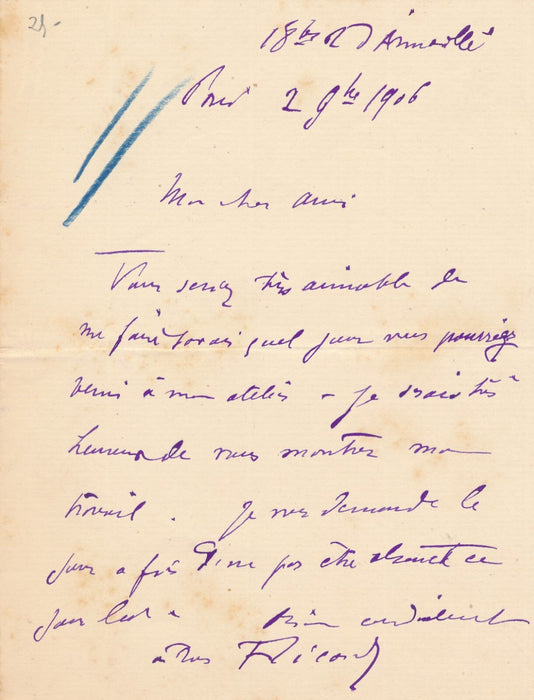 25 -
18bis R d'Armaillé
Paris 2 9bre 1906
Mon cher ami
Vous seriez très aimable de
me faire savoir quel jour vous pourriez
venir à mon atelier - Je serais très
heureux de vous montrer mon
travail. Je vous demande le
jour afin de ne pas être absent ce
jour là -
Bien cordialement
à vous